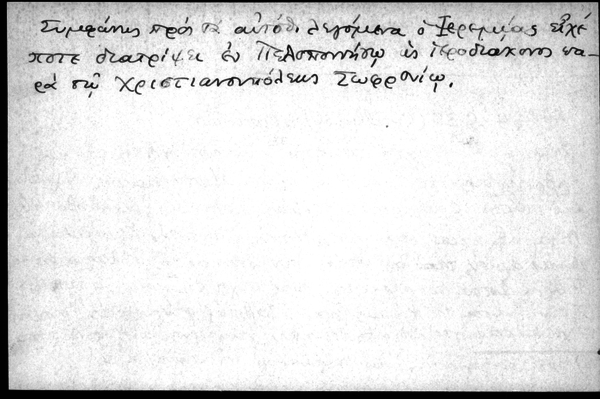 Συμφώνως πρὸς τὰ αὐτόθι λεγόμενα ὁ Ἱερεμίας εἶχέ
ποτε διατρίψει ἐν Πελοποννήσῳ ὡς ἱεροδιάκονος πα-
ρὰ τῷ Χριστιανουπόλεως Σωφρονίῳ.